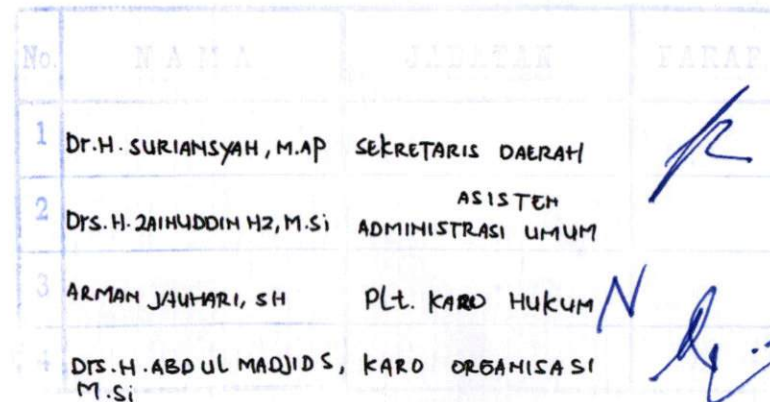 No. NAMA JABATAN PARAF
1 Dr.H. SURIANSYAH, M.AP SEKRETARIS DAERAH
2 Drs. H. ZAINUDDIN HZ, M.Si ASISTEN
ADMINISTRASI UMUM
3 ARMAN JAUHARI, SH Plt. KARO HUKUM
4 Drs. H. ABDUL MADJID S, KARO ORGANISASI
M.Si